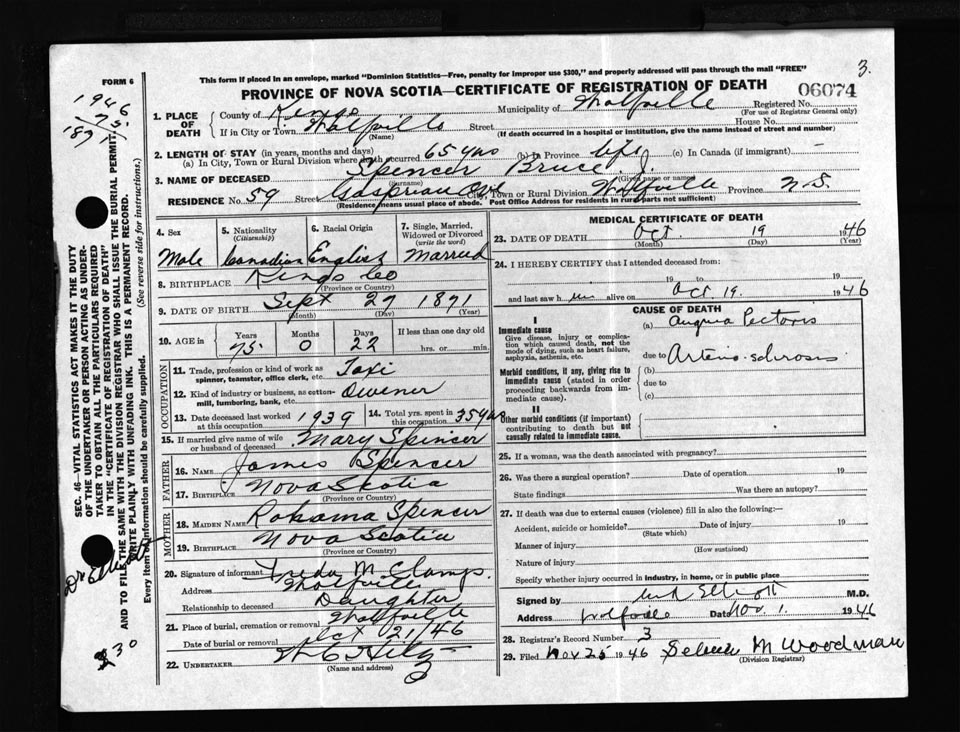 3.
FORM 6
This form if placed in an envelope, marked "Dominion Statistics—Free, penalty for improper use $300," and properly addressed will pass through the mail "FREE"
PROVINCE OF NOVA SCOTIA—CERTIFICATE OF REGISTRATION OF DEATH
06074
1946
75
1871
1. PLACE OF DEATH
County of Kings Municipality of Wolfville Registered No.
(For use of Registrar General only)
If in City or Town Wolfville Street House No.
(Name) (If death occurred in a hospital or institution, give the name instead of street and number)
2. LENGTH OF STAY (in years, months and days)
(a) In City, Town or Rural Division where death occurred 65 yrs (b) In Province life (c) In Canada (if immigrant) —
3. NAME OF DECEASED Spencer Bruce J
(Surname) (Given name or names)
RESIDENCE No. 59 Street Gaspereau City, Town or Rural Division Wolfville Province N.S.
(Residence means usual place of abode. Post Office Address for residents in rural parts not sufficient)
4. Sex
Male
5. Nationality
(Citizenship)
Canadian
6. Racial Origin
English
7. Single, Married, Widowed or Divorced
(write the word)
Married
8. BIRTHPLACE Kings Co
(Province or Country)
9. DATE OF BIRTH Sept 27 1871
(Month) (Day) (Year)
10. AGE in Years Months Days If less than one day old
75 0 22 hrs. or min.
OCCUPATION
11. Trade, profession or kind of work as spinner, teamster, office clerk, etc. Taxi
12. Kind of industry or business, as cotton-mill, lumbering, bank, etc. Owener
13. Date deceased last worked at this occupation 1939 14. Total yrs. spent in this occupation 35 yrs
15. If married give name of wife or husband of deceased Mary Spencer
FATHER
16. NAME James Spencer
17. BIRTHPLACE Nova Scotia
(Province or Country)
MOTHER
18. MAIDEN NAME Rohama Spencer
19. BIRTHPLACE Nova Scotia
(Province or Country)
20. Signature of informant Freda M
Address Wolfville
Relationship to deceased Daughter
21. Place of burial, cremation or removal Wolfville
Date of burial or removal Oct 21/46
22. UNDERTAKER
(Name and address)
MEDICAL CERTIFICATE OF DEATH
23. DATE OF DEATH Oct. 19 1946
(Month) (Day) (Year)
24. I HEREBY CERTIFY that I attended deceased from:
19 to 19
and last saw h im alive on Oct 19. 1946
CAUSE OF DEATH
I
Immediate cause
Give disease, injury or complication which caused death, not the mode of dying, such as heart failure, asphyxia, asthenia, etc.
(a) Angina Pectoris
due to Arterio-sclerosis
Morbid conditions, if any, giving rise to immediate cause (stated in order proceeding backwards from immediate cause).
(b)
due to
(c)
II
Other morbid conditions (if important) contributing to death but not causally related to immediate cause.
25. If a woman, was the death associated with pregnancy?
26. Was there a surgical operation? Date of operation 19
State findings Was there an autopsy?
27. If death was due to external causes (violence) fill in also the following:—
Accident, suicide or homicide? Date of injury 19
(State which)
Manner of injury
(How sustained)
Nature of injury
Specify whether injury occurred in industry, in home, or in public place
Signed by Elliott M.D.
Address Wolfville Date Nov 1. 1946
28. Registrar's Record Number 3
29. Filed Nov 25 1946 M Woodman
(Division Registrar)
SEC. 46—VITAL STATISTICS ACT MAKES IT THE DUTY
OF THE UNDERTAKER OR PERSON ACTING AS UNDER-
TAKER TO OBTAIN ALL THE PARTICULARS REQUIRED
IN THE "CERTIFICATE OF REGISTRATION OF DEATH"
AND TO FILE THE SAME WITH THE DIVISION REGISTRAR WHO SHALL ISSUE THE BURIAL PERMIT.
WRITE PLAINLY WITH UNFADING INK. THIS IS A PERMANENT RECORD.
Every item of information should be carefully supplied. (See reverse side for instructions.)